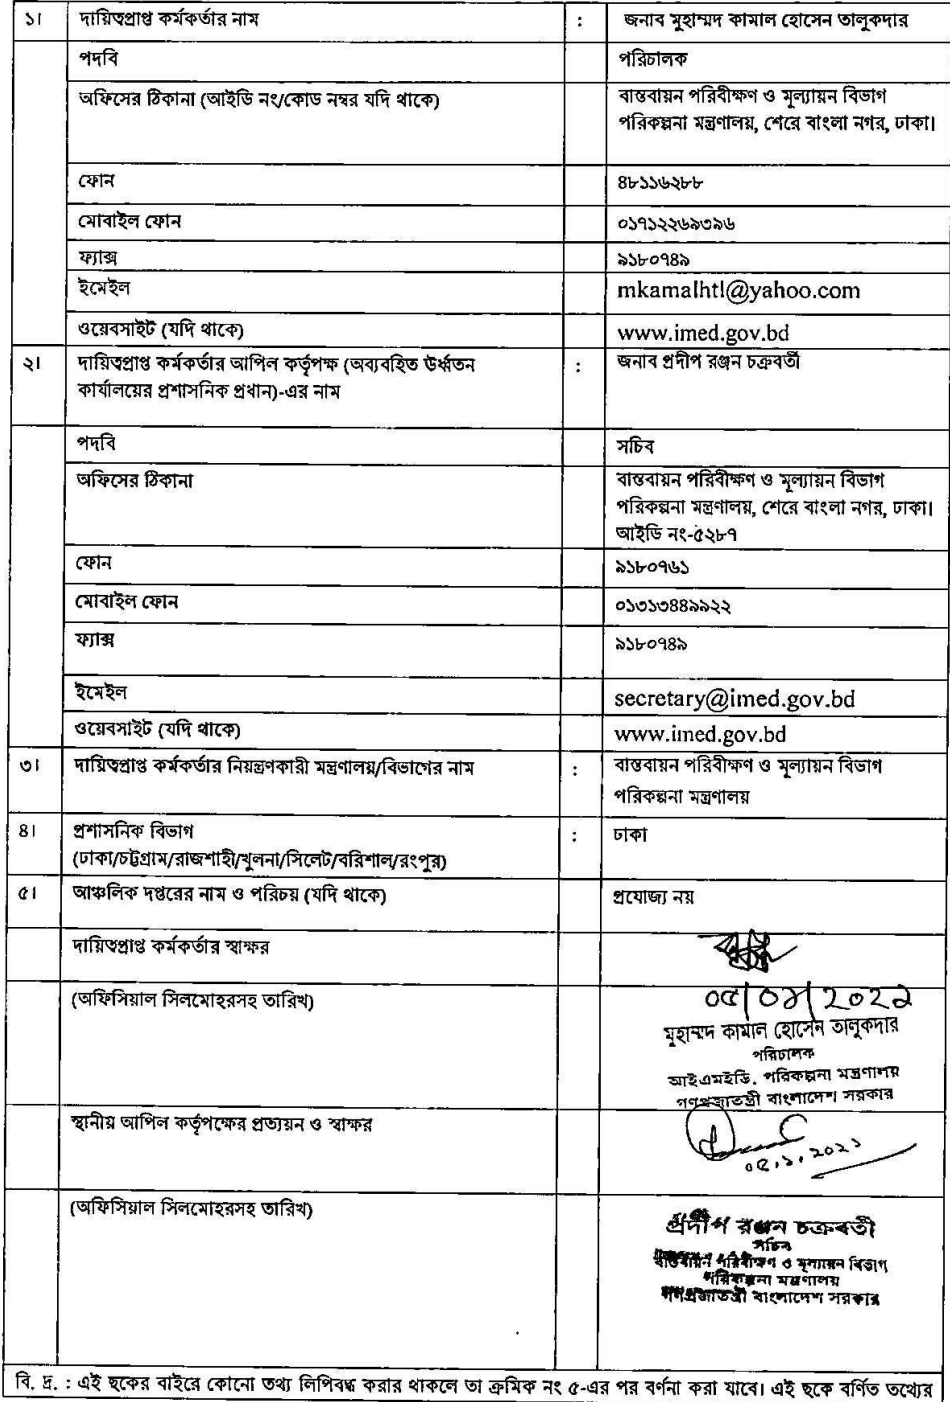 ১। দায়িত্বপ্রাপ্ত কর্মকর্তার নাম : জনাব মুহাম্মদ কামাল হোসেন তালুকদার
পদবি পরিচালক
অফিসের ঠিকানা (আইডি নং/কোড নম্বর যদি থাকে) বাস্তবায়ন পরিবীক্ষণ ও মূল্যায়ন বিভাগ
পরিকল্পনা মন্ত্রণালয়, শেরে বাংলা নগর, ঢাকা।
ফোন ৪৮১১৬২৮৮
মোবাইল ফোন ০১৭১২২৬৯৩৯৬
ফ্যাক্স ৯১৮০৭৪৯
ইমেইল mkamalhtl@yahoo.com
ওয়েবসাইট (যদি থাকে) www.imed.gov.bd
২। দায়িত্বপ্রাপ্ত কর্মকর্তার আপিল কর্তৃপক্ষ (অব্যবহিত উর্ধ্বতন : জনাব প্রদীপ রঞ্জন চক্রবর্তী
কার্যালয়ের প্রশাসনিক প্রধান)-এর নাম
পদবি সচিব
অফিসের ঠিকানা বাস্তবায়ন পরিবীক্ষণ ও মূল্যায়ন বিভাগ
পরিকল্পনা মন্ত্রণালয়, শেরে বাংলা নগর, ঢাকা।
আইডি নং-৫২৮৭
ফোন ৯১৮০৭৬১
মোবাইল ফোন ০১৩১৩৪৪৯৯২২
ফ্যাক্স ৯১৮০৭৪৯
ইমেইল secretary@imed.gov.bd
ওয়েবসাইট (যদি থাকে) www.imed.gov.bd
৩। দায়িত্বপ্রাপ্ত কর্মকর্তার নিয়ন্ত্রণকারী মন্ত্রণালয়/বিভাগের নাম : বাস্তবায়ন পরিবীক্ষণ ও মূল্যায়ন বিভাগ
পরিকল্পনা মন্ত্রণালয়
৪। প্রশাসনিক বিভাগ : ঢাকা
(ঢাকা/চট্টগ্রাম/রাজশাহী/খুলনা/সিলেট/বরিশাল/রংপুর)
৫। আঞ্চলিক দপ্তরের নাম ও পরিচয় (যদি থাকে) প্রযোজ্য নয়
দায়িত্বপ্রাপ্ত কর্মকর্তার স্বাক্ষর
(অফিসিয়াল সিলমোহরসহ তারিখ) ০৫/০১/২০২১
মুহাম্মদ কামাল হোসেন তালুকদার
পরিচালক
আইএমইডি, পরিকল্পনা মন্ত্রণালয়
গণপ্রজাতন্ত্রী বাংলাদেশ সরকার
স্থানীয় আপিল কর্তৃপক্ষের প্রত্যয়ন ও স্বাক্ষর
০৫.১.২০২১
(অফিসিয়াল সিলমোহরসহ তারিখ) প্রদীপ রঞ্জন চক্রবর্তী
সচিব
বাস্তবায়ন পরিবীক্ষণ ও মূল্যায়ন বিভাগ
পরিকল্পনা মন্ত্রণালয়
গণপ্রজাতন্ত্রী বাংলাদেশ সরকার
বি. দ্র. : এই ছকের বাইরে কোনো তথ্য লিপিবদ্ধ করার থাকলে তা ক্রমিক নং ৫-এর পর বর্ণনা করা যাবে। এই ছকে বর্ণিত তথ্যের